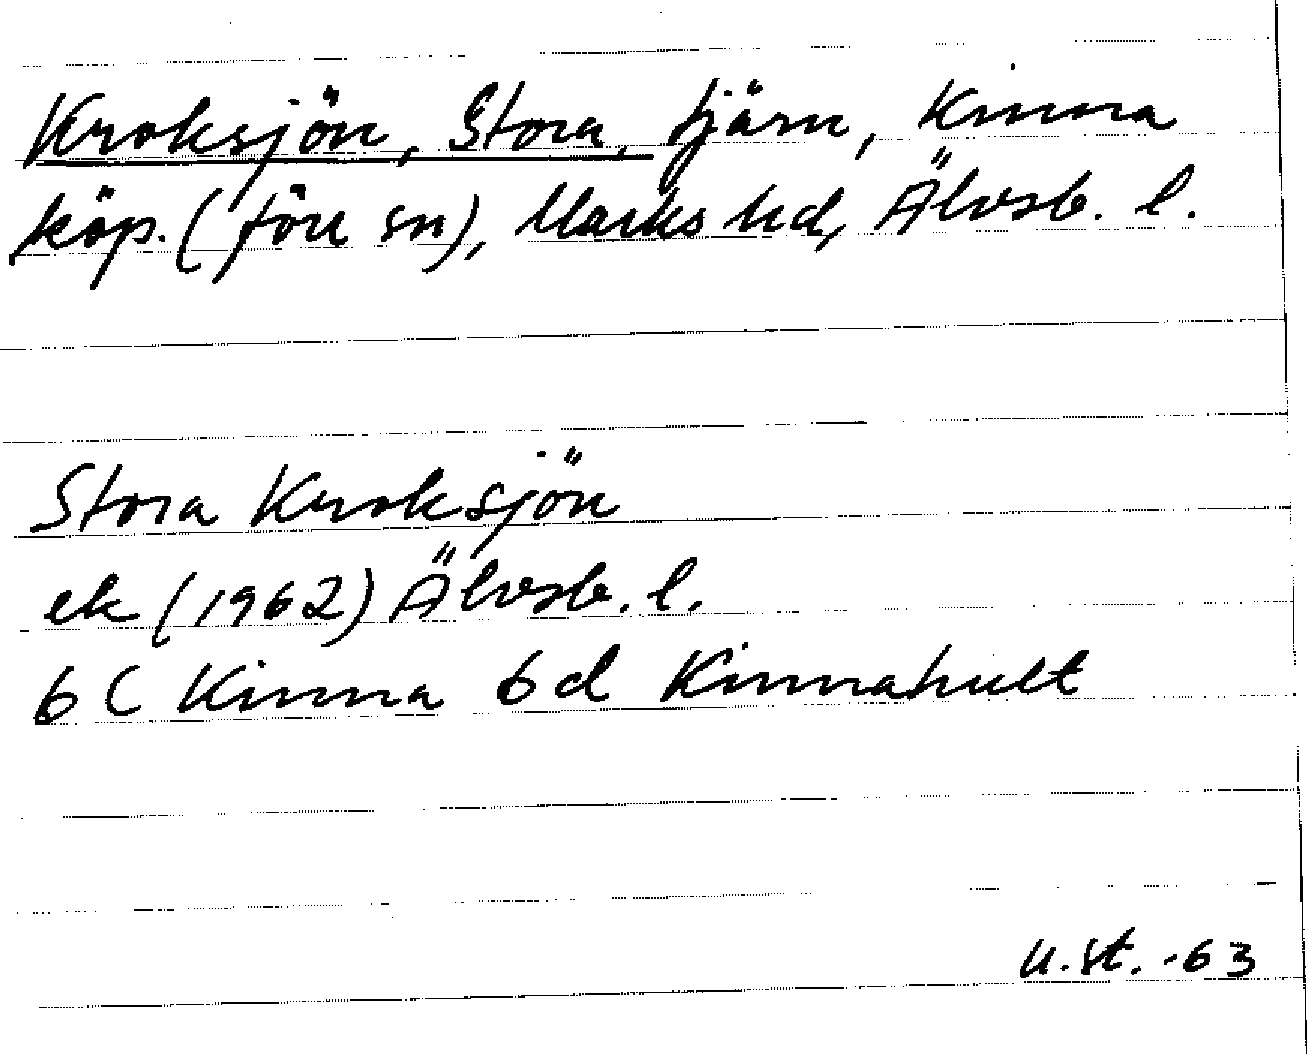 Kroksjön, Stora, tjärn, Kinna
köp. (förr sn), Marks hd, Älvsb. l.
Stora Kroksjön
ek (1962) Älvsb. l.
6 C Kinna 6 d Kinnahult
U. St. -63